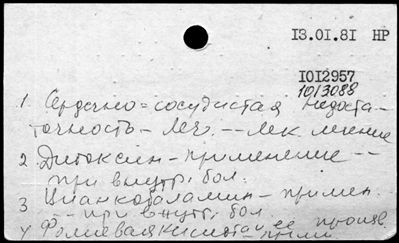 13.01.81 НР
1012957
1013088
1. Сердечно=сосудистая недоста-
точность - леч. -- лек. лечение
2. Дитоксин - применение --
при внутр. бол.
3 Цианкобаламин - примен.
-- при внутр. бол.
4 Фолиевая кислота